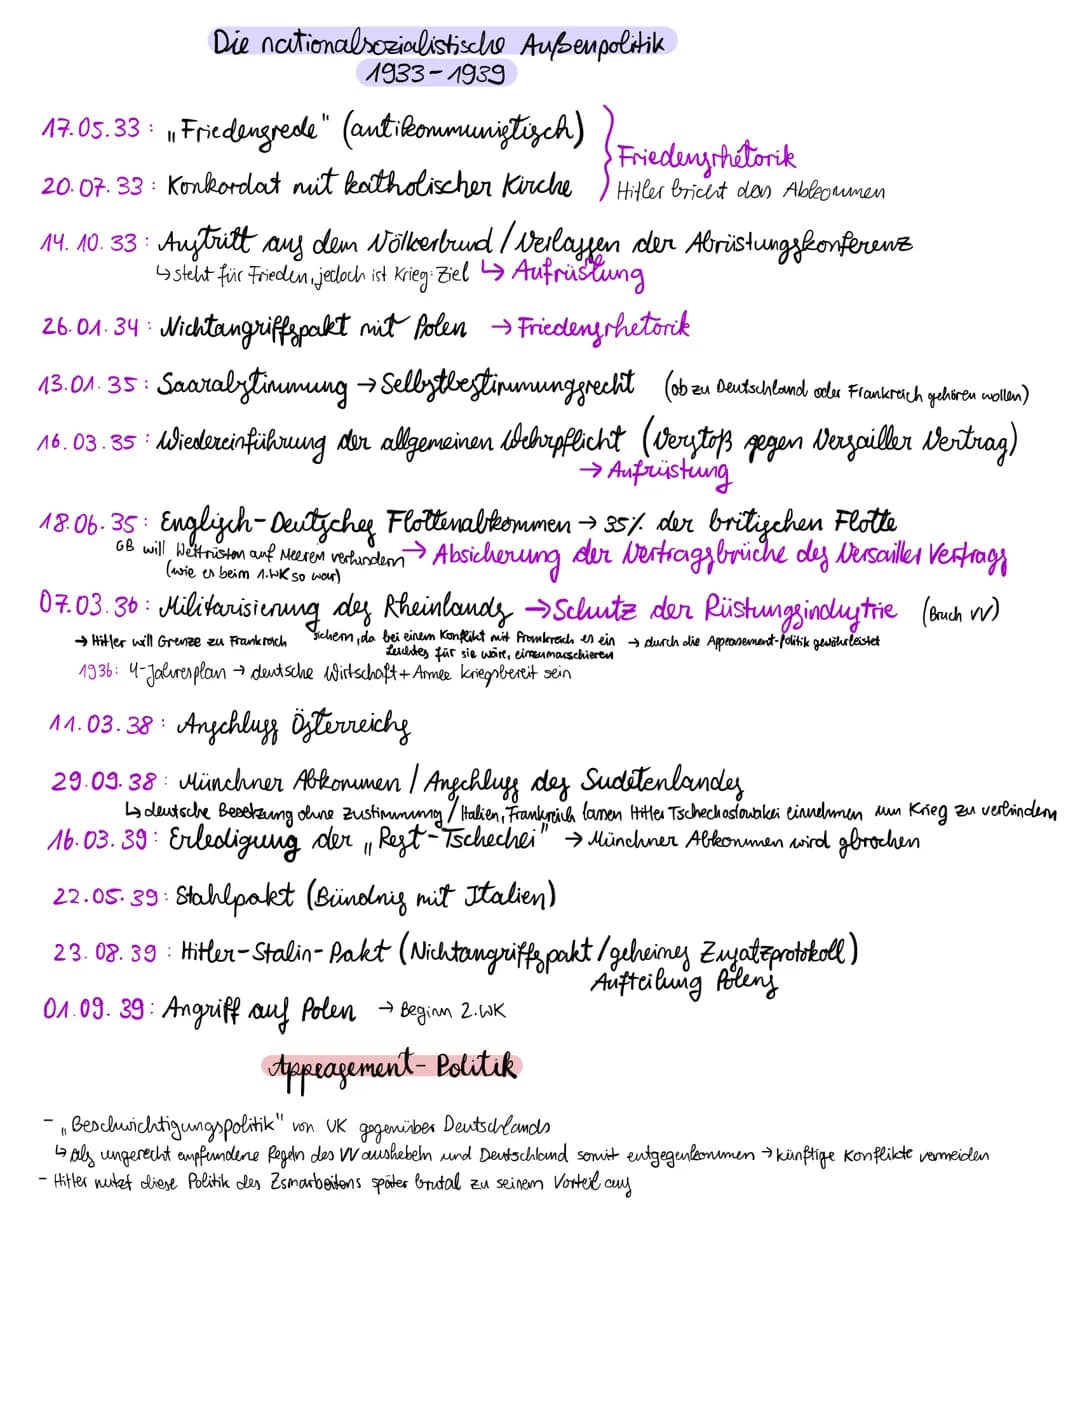 Die nationalsozialistische Außenpolitik
1933-1939
17.05.33: „Friedensrede" (antikommunistisch)
Friedensrhetorik
20.07.33: Konkordat mit katholischer Kirche
Hitler bricht das Abkommen
14.10.33: Austritt aus dem Völkerbund / Verlassen der Abrüstungskonferenz
↳ steht für Frieden, jedoch ist Krieg Ziel ↳ Aufrüstung
26.01.34: Nichtangriffspakt mit Polen → Friedensrhetorik
13.01.35: Saarabstimmung → Selbstbestimmungsrecht (ob zu Deutschland oder Frankreich gehören wollen)
16.03.35: Wiedereinführung der allgemeinen Wehrpflicht (Verstoß gegen Versailler Vertrag)
→ Aufrüstung
18.06.35: Englisch-Deutsches Flottenabkommen → 35% der britischen Flotte
GB will Wettrüsten auf Meeren verhindern → Absicherung der Vertragsbrüche des Versailler Vertrags
(wie es beim 1.WK so war)
07.03.36: Militarisierung des Rheinlands → Schutz der Rüstungsindustrie (Bruch VV)
→ Hitler will Grenze zu Frankreich sichern, da bei einem Konflikt mit Frankreich es ein → durch die Appeasement-Politik gewährleistet
leichtes für sie wäre, einzumarschieren
1936: 4-Jahresplan → deutsche Wirtschaft + Armee kriegsbereit sein
11.03.38: Anschluss Österreichs
29.09.38: Münchner Abkommen / Anschluss des Sudetenlandes
↳ deutsche Besetzung ohne Zustimmung / Italien, Frankreich lassen Hitler Tschechoslowakei einnehmen um Krieg zu verhindern
16.03.39: Erledigung der „Rest-Tschechei" → Münchner Abkommen wird gbrochen
22.05.39: Stahlpakt (Bündnis mit Italien)
23.08.39: Hitler-Stalin-Pakt (Nichtangriffspakt / geheimes Zusatzprotokoll)
Aufteilung Polens
01.09.39: Angriff auf Polen → Beginn 2.WK
Appeasement-Politik
- „Beschwichtigungspolitik" von UK gegenüber Deutschlands
↳ als ungerecht empfundene Regeln des VV aushebeln und Deutschland somit entgegenkommen → künftige Konflikte vermeiden
- Hitler nutzt diese Politik des Zsmarbeitens später brutal zu seinem Vorteil aus